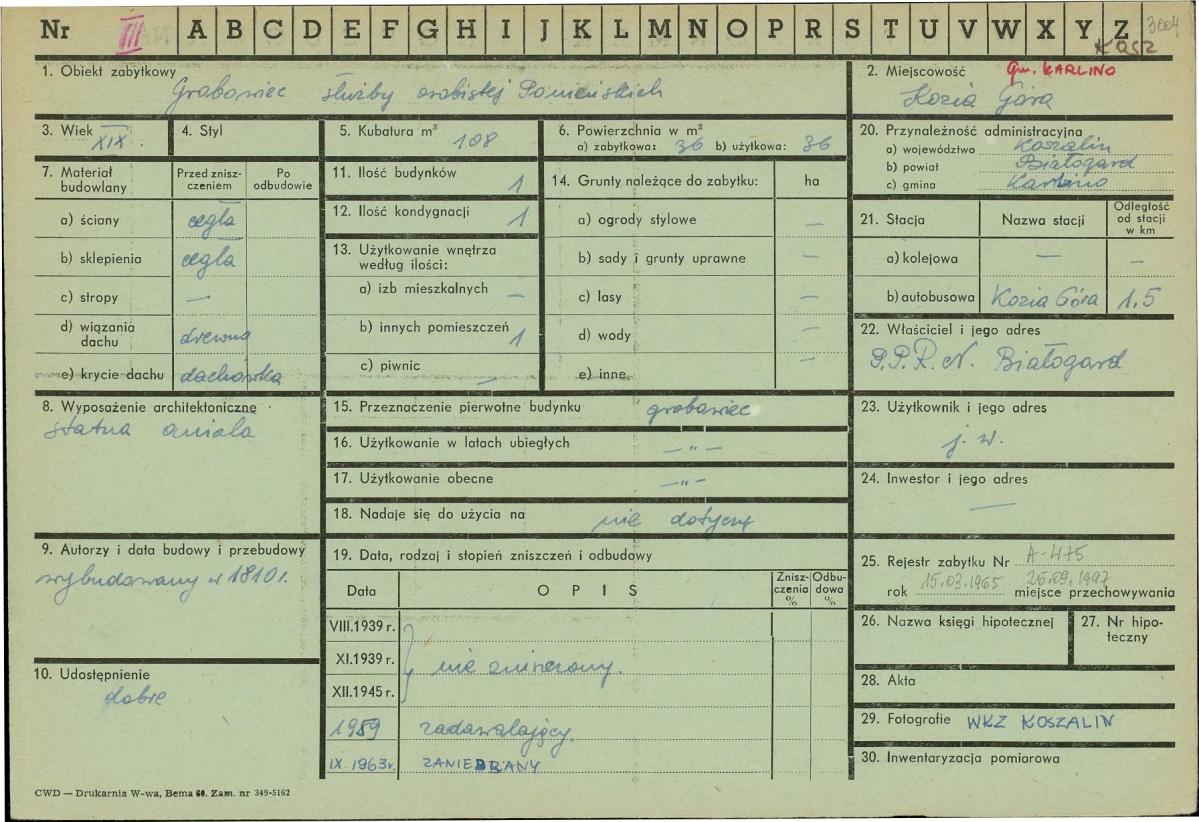 Nr III A B C D E F G H I J K L M N O P R S T U V W X Y Z 3004
KOSZ
1. Obiekt zabytkowy
Grobowiec służby osobistej Ponieńskich
2. Miejscowość gm. KARLINO
Kozia Góra
3. Wiek XIX.
4. Styl
5. Kubatura m³ 108
6. Powierzchnia w m²
a) zabytkowa: 36 b) użytkowa: 36
7. Materiał budowlany
Przed zniszczeniem
Po odbudowie
a) ściany cegła
b) sklepienia cegła
c) stropy —
d) wiązania dachu drewno
e) krycie dachu dachówka
8. Wyposażenie architektoniczne
statua anioła
9. Autorzy i data budowy i przebudowy
wybudowany w 1810 r.
10. Udostępnienie
dobre
11. Ilość budynków 1
12. Ilość kondygnacji 1
13. Użytkowanie wnętrza
według ilości:
a) izb mieszkalnych —
b) innych pomieszczeń 1
c) piwnic —
14. Grunty należące do zabytku: ha
a) ogrody stylowe —
b) sady i grunty uprawne —
c) lasy —
d) wody —
e) inne —
15. Przeznaczenie pierwotne budynku grobowiec
16. Użytkowanie w latach ubiegłych — „ —
17. Użytkowanie obecne — „ —
18. Nadaje się do użycia na nie dotyczy
19. Data, rodzaj i stopień zniszczeń i odbudowy
Data
OPIS
Zniszczenia %
Odbudowa %
VIII.1939 r.
XI.1939 r. nie zniszczony.
XII.1945 r.
1959 zadawalający.
IX. 1963 r. ZANIEDBANY
20. Przynależność administracyjna
a) województwo Koszalin
b) powiat Białogard
c) gmina Karlino
21. Stacja
Nazwa stacji
Odległość od stacji w km
a) kolejowa — —
b) autobusowa Kozia Góra 1,5
22. Właściciel i jego adres
P.P.R.N. Białogard
23. Użytkownik i jego adres
j. w.
24. Inwestor i jego adres
—
25. Rejestr zabytku Nr A-475
rok 15.03.1965 25.09.1997 miejsce przechowywania
26. Nazwa księgi hipotecznej
27. Nr hipoteczny
28. Akta
29. Fotografie WKZ KOSZALIN
30. Inwentaryzacja pomiarowa
CWD — Drukarnia W-wa, Bema 60. Zam. nr 349-5162